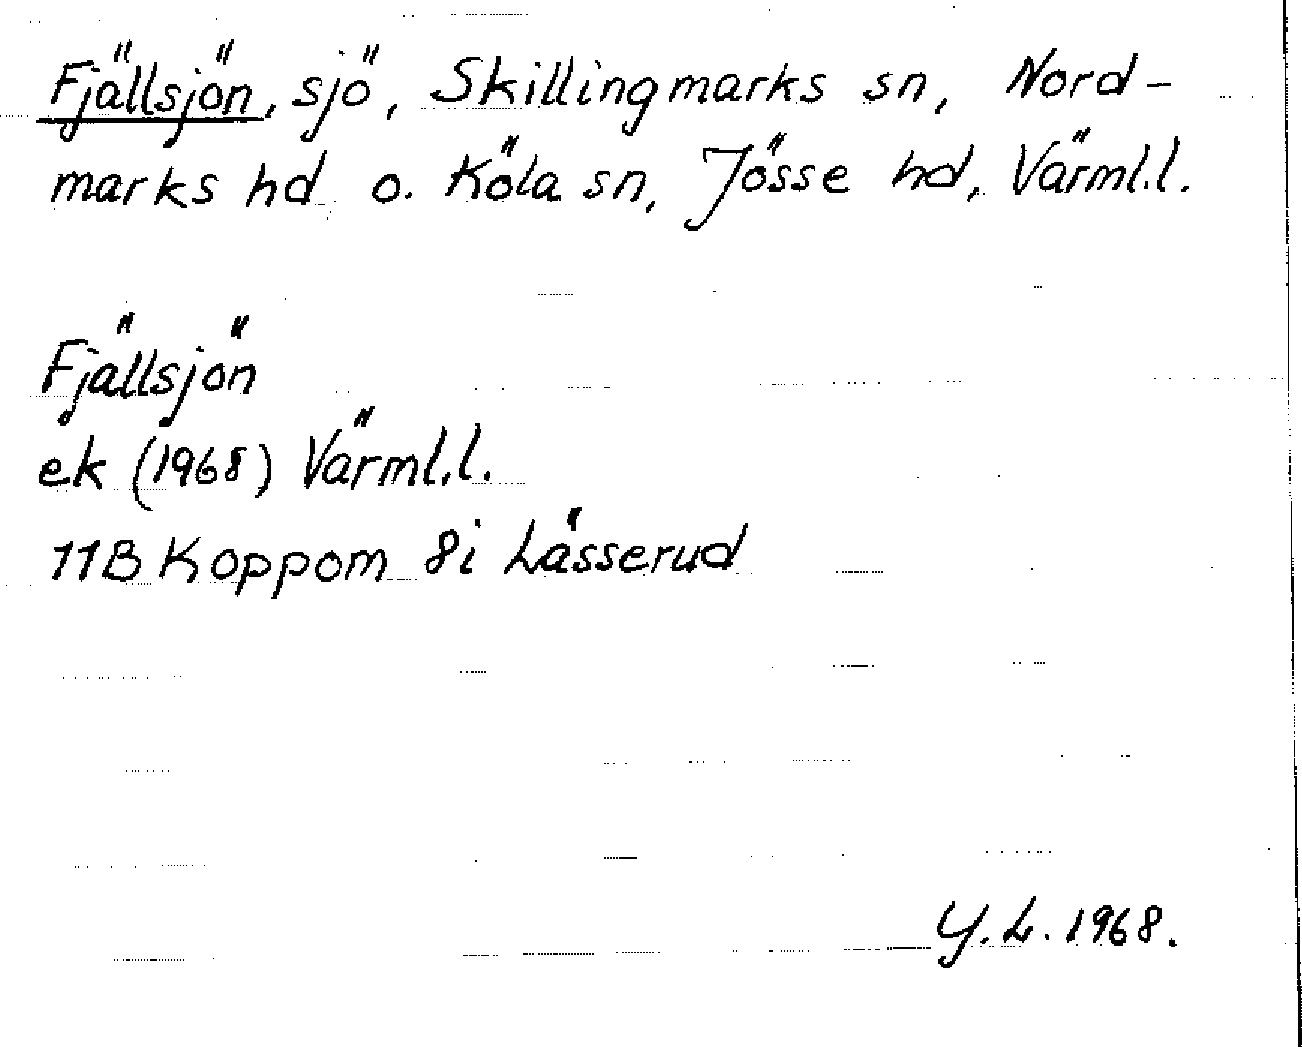 Fjällsjön, sjö, Skillingmarks sn, Nord-
marks hd o. Köla sn, Jösse hd, Värml.l.
Fjällsjön
ek (1968) Värml.l.
11B Koppom 8i Lässerud
Y.L. 1968.